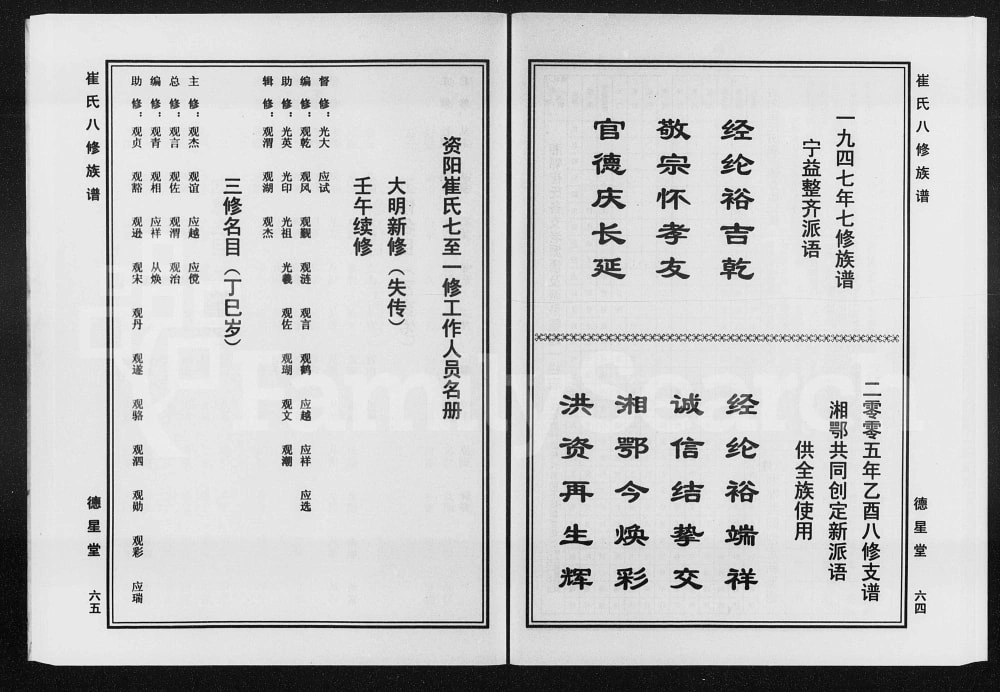 崔氏八修族谱
德星堂
六四
一九四七年七修族谱
宁益整齐派语
经纶裕吉乾
敬宗怀孝友
官德庆长延
二零零五年乙酉八修支谱
湘鄂共同创定新派语
供全族使用
经纶裕端祥
诚信结挚交
湘鄂今焕彩
洪资再生辉
资阳崔氏七至一修工作人员名册
大明新修（失传）
壬午续修
督修：光大 应试
编修：观乾 观风 观觐 观涟 观言 观鹤 应越 应祥 应选
助修：光英 光印 光祖 光羲 观佐 观瑚 观文 观潮
辑修：观渭 观湖 观杰
三修名目（丁巳岁）
主修：观杰 观谊 应越 应傥
总修：观言 观佐 观渭 观治
编修：观青 观相 应祥 从焕
助修：观贞 观豁 观逊 观宋 观丹 观遂 观骆 观泗 观勋 观彩 应瑞
崔氏八修族谱
德星堂
六五
FamilySearch